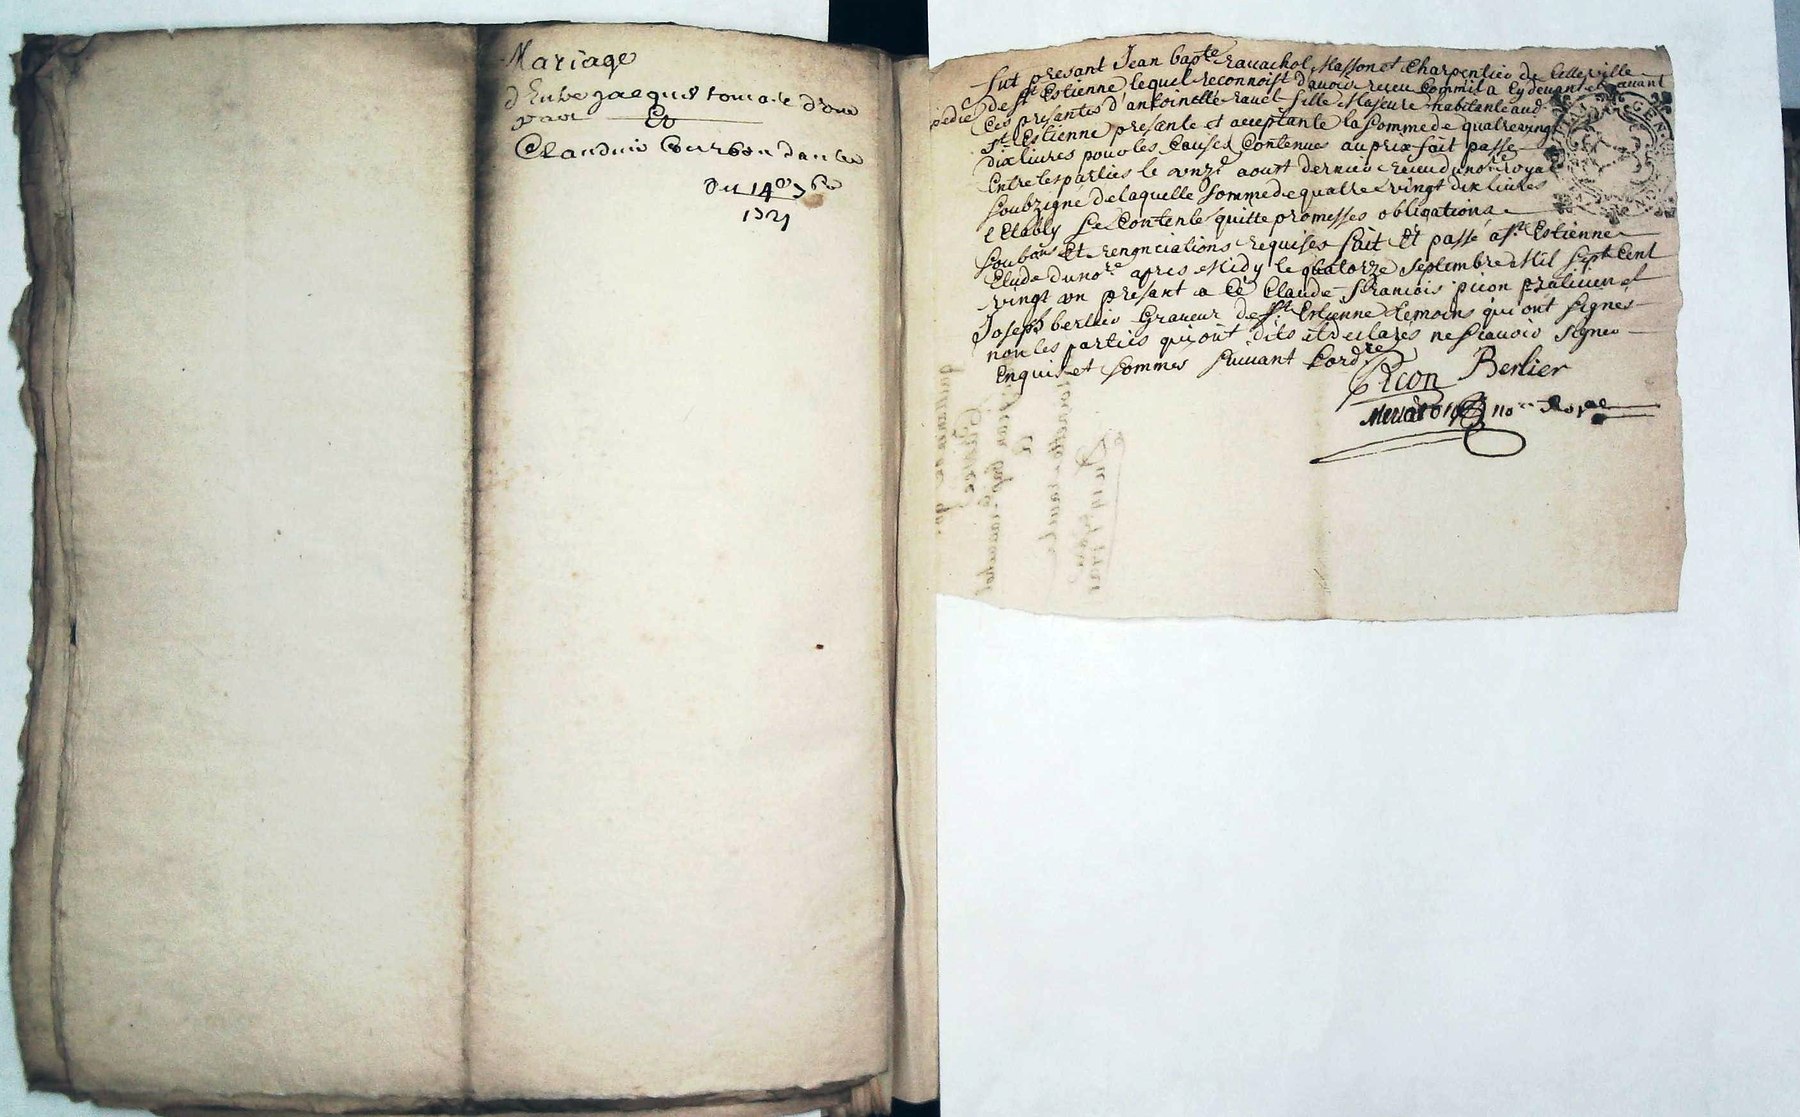 Mariage
d'Entre Jacques
Et
Claudine Bourbon
Du 14e 7bre
1721
fut presant Jean bapte ravachol Masson et Charpentier de Cette ville
de st Estienne lequel reconnoist d'avoir receu Comm'il a Cy devant et avant
Ces presantes d'antoinette ravel fille Majeure habitante aud
st Estienne presante et acceptante la somme de quatre vingt
dix livres pour les Causes Contenues au prix fait passé
Entre les parties le onze aoust dernier receu du nore royal
soubzigné de laquelle somme de quatre vingt dix livres
Et Estably se Contente quitte promesses obligations
soubons Et renonciations requises fait Et passé a st Estienne
Etude du nore apres Midy le quatorze septembre Mil sept Cent
vingt un presant a Ce Claude francois picon praticien et
Joseph berlier Graveur de st Estienne temoins qui ont signés
non les parties qui ont dits et declarés ne scavoir signer
Enquis et sommes suivant l'ordre
Picon Berlier
nore Royal